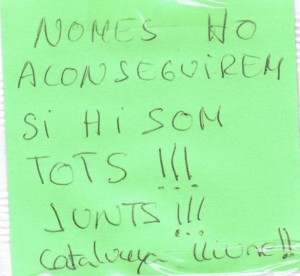 NOMES HO
ACONSEGUIREM
Si Hi SOM
TOTS !!!
JUNTS !!!
Catalunya lliure!!